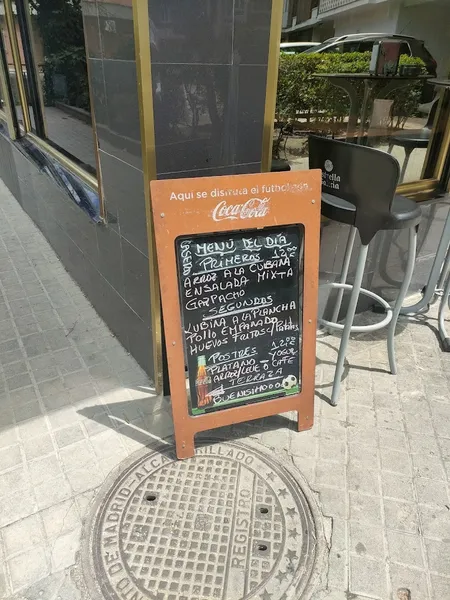 Aquí se disfruta el futbol
Coca-Cola
MENÚ DEL DÍA
PRIMEROS
ARROZ A LA CUBANA
ENSALADA MIXTA
GAZPACHO
SEGUNDOS
LUBINA A LA PLANCHA
POLLO EMPANADO
HUEVOS FRITOS c/Patatas
POSTRES
PLATANO - YOGUR
ARROZ/LECHE O CAFE
TERRAZA
BUENISIMO
MADRID-ALCANTARILLADO
REGISTRO